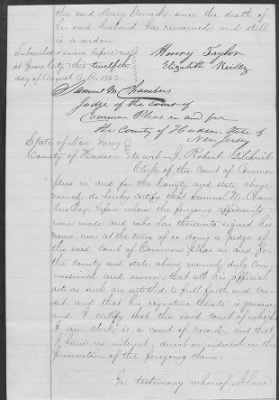 the said Mary Daniels since the death of
her said husband has remained and still
is a widow
Subscribed & sworn before me
at Jersey City this twelfth
day of August A.D. 1862.
Henry Taylor
Elizabeth Reilly
Samuel M. Chambers
Judge of the Court of
Common Pleas in and for
the County of Hudson State of
New Jersey
State of New Jersey
County of Hudson to wit - I Robert Gilchrist
Clerk of the Court of Common
Pleas in and for the County and State above
named do hereby certify that Samuel M. Cham
bers Esqr before whom the forgoing affidavits
were made and who has thereunto signed his
name, was at the time of so doing a Judge of
the said Court of Common Pleas in and for
the county and state above named, duly Com
missioned and sworn, that all his official
acts as such are entitled to full faith and cre
dit and that his signature thereto is genuine
and I certify that the said court of which
I am clerk is a court of record, and that
I have no interest, direct or indirect in the
prosecution of the forgoing claim.
In testimony whereof I have